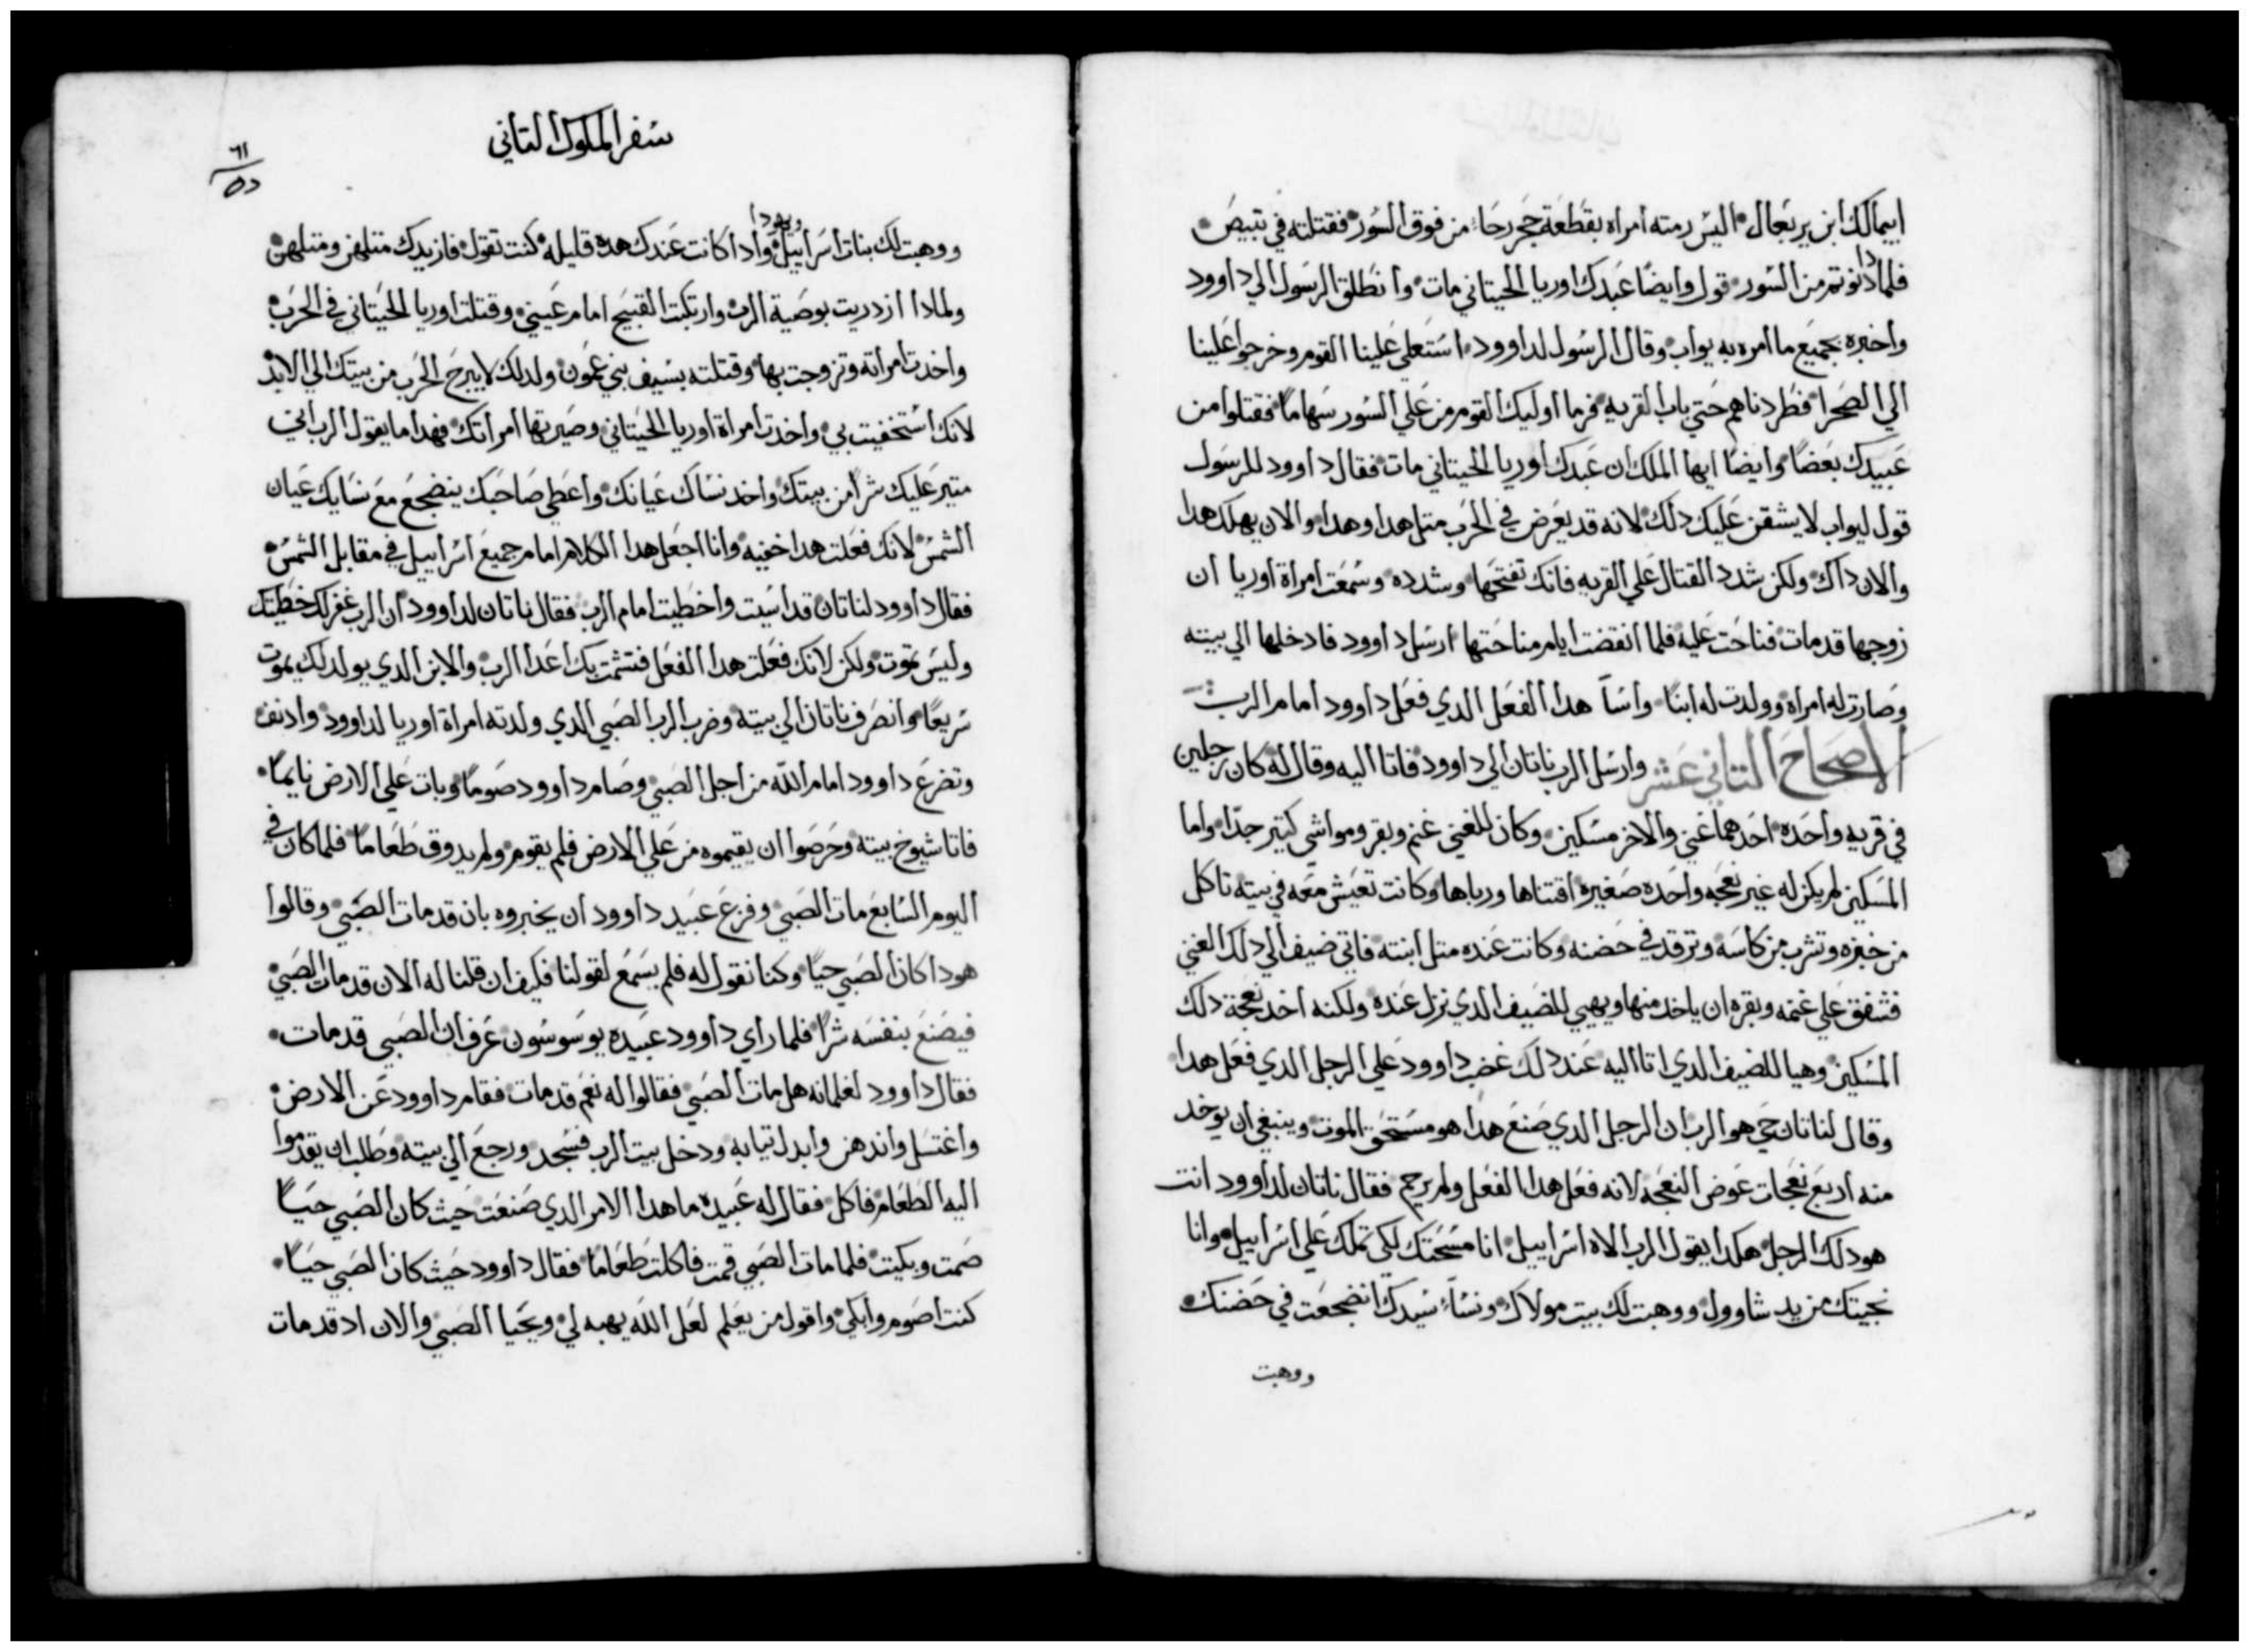 ايمالك ابن يربعال اليس رمته امراه بقطعة حجر رحا من فوق السور فقتلته في تبيص
فلما دنوتم من السور قول وايضًا عبدك اوريا الحيتاني مات وانطلق الرسول الي داوود
واخبره بجميع ما امره به يواب وقال الرسول لداوود استعلي علينا القوم وخرجوا علينا
الي الصحرا فطردناهم حتي باب القريه فرما اوليك القوم من علي السور سهامًا فقتلوا من
عبيدك بعضًا وايضًا ايها الملك ان عبدك اوريا الحيتاني مات فقال داوود للرسول
قول ليواب لا يشقن عليك دلك لانه قد يعرض في الحرب متل هدا وهدا والان يهلك هدا
والان داك ولكن شدد القتال علي القريه فانك تفتحها وشدده وسمعت امراة اوريا ان
زوجها قد مات فناحت عليه فلما انقضت ايام مناحتها ارسل داوود فادخلها الي بيته
وصارت له امراة وولدت له ابنًا واسآ هدا الفعل الدي فعل داوود امام الرب
الاصحاح التاني عشر وارسل الرب ناتان الي داوود فاتا اليه وقال له كان رجلين
في قريه واحده احدهما غني والاخر مسكين وكان للغني غنم وبقر ومواشي كتير جدًا واما
المسكين لم يكن له غير نعجه واحده صغيره اقتناها ورباها وكانت تعيش معه في بيته تاكل
من خبزه وتشرب من كاسه وترقد في حضنه وكانت عنده متل ابنته فاتي ضيف الي دلك الغني
فشفق علي غنمه وبقره ان ياخد منها ويهيي للضيف الدي نزل عنده ولكنه اخد نعجة دلك
المسكين وهيا للضيف الدي اتا اليه عند دلك غضب داوود علي الرجل الدي فعل هدا
وقال لناتان حي هو الرب ان الرجل الدي صنع هدا هو مستحق الموت وينبغي ان يوخد
منه اربع نعجات عوض النعجه لانه فعل هدا الفعل ولم يرحم فقال ناتان لداوود انت
هو دلك الرجل هكدا يقول الرب الاه اسراييل انا مسحتك لكي تملك علي اسراييل وانا
نجيتك من يد شاوول ووهبت لك بيت مولاك ونسآ سيدك انضجعت في حضنك
ووهبت
سفر الملوك التاني
٦١
٥٥
ووهبت لك بنات اسراييل ويهودا وادا كانت عندك هده قليله كنت تقول فازيدك متلهن ومتلهن
ولمادا ازدريت بوصية الرب وارتكبت القبيح امام عيني وقتلت اوريا الحيتاني في الحرب
واخدت امراته وتزوجت بها وقتلته بسيف بني عمون ولدلك لا يبرح الحرب من بيتك الي الابد
لانك استخفيت بي واخدت امراة اوريا الحيتاني وصيرتها امراتك فهدا ما يقول الرب اني
متير عليك شرًا من بيتك واخد نساك عيانك واعطي صاحبك ينضجع مع نسايك عيان
الشمس لانك فعلت هدا خفيه وانا اجعل هدا الكلام امام جميع اسراييل في مقابل الشمس
فقال داوود لناتان قد اسيت واخطيت امام الرب فقال ناتان لداوود ان الرب غفر لك خطيتك
وليس تموت ولكن لانك فعلت هدا الفعل فتشمت بك اعدا الرب والابن الدي يولد لك يموت
سريعًا وانصرف ناتان الي بيته وضرب الرب الصبي الدي ولدته امراة اوريا لداوود وادنف
وتضرع داوود امام الله من اجل الصبي وصام داوود صومًا وبات علي الارض نايمًا
فاتا شيوخ بيته وحرصوا ان يقيموه من علي الارض فلم يقوم ولم يدوق طعامًا فلما كان في
اليوم السابع مات الصبي وفزع عبيد داوود ان يخبروه بان قد مات الصبي وقالوا
هودا كان الصبي حيًا وكنا نقول له فلم يسمع لقولنا فكيف ان قلنا له الان قد مات الصبي
فيصنع بنفسه شرًا فلما راي داوود عبيده يوسوسون عرف ان الصبي قد مات
فقال داوود لغلمانه هل مات الصبي فقالوا له نعم قد مات فقام داوود عن الارض
واغتسل واندهن وابدل تيابه ودخل بيت الرب فسجد ورجع الي بيته وطلب ان يقدموا
اليه الطعام فاكل فقال له عبيده ما هدا الامر الدي صنعت حيث كان الصبي حيًا
صمت وبكيت فلما مات الصبي قمت فاكلت طعامًا فقال داوود حيث كان الصبي حيًا
كنت اصوم وابكي واقول من يعلم لعل الله يهبه لي ويحيا الصبي والان اد قد مات